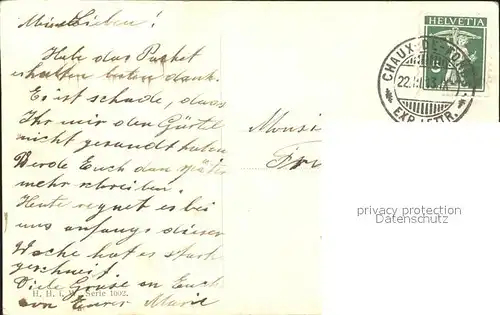 Meine Lieben!
Habe das Packet
erhalten besten dank.
Es ist schade, dass
Ihr mir den Gürtel
nicht gesandt habt.
Werde Euch dan später
mehr schreiben.
Heute regnet es bei
uns anfangs dieser
Woche hat es stark
geschneit.
Viele Grüse an Euch
von Eurer Marie
H. H. i. W. Serie 1002.
Monsi
HELVETIA
CHAUX-DE-FONDS
EXP. LETTR.
privacy protection
Datenschutz